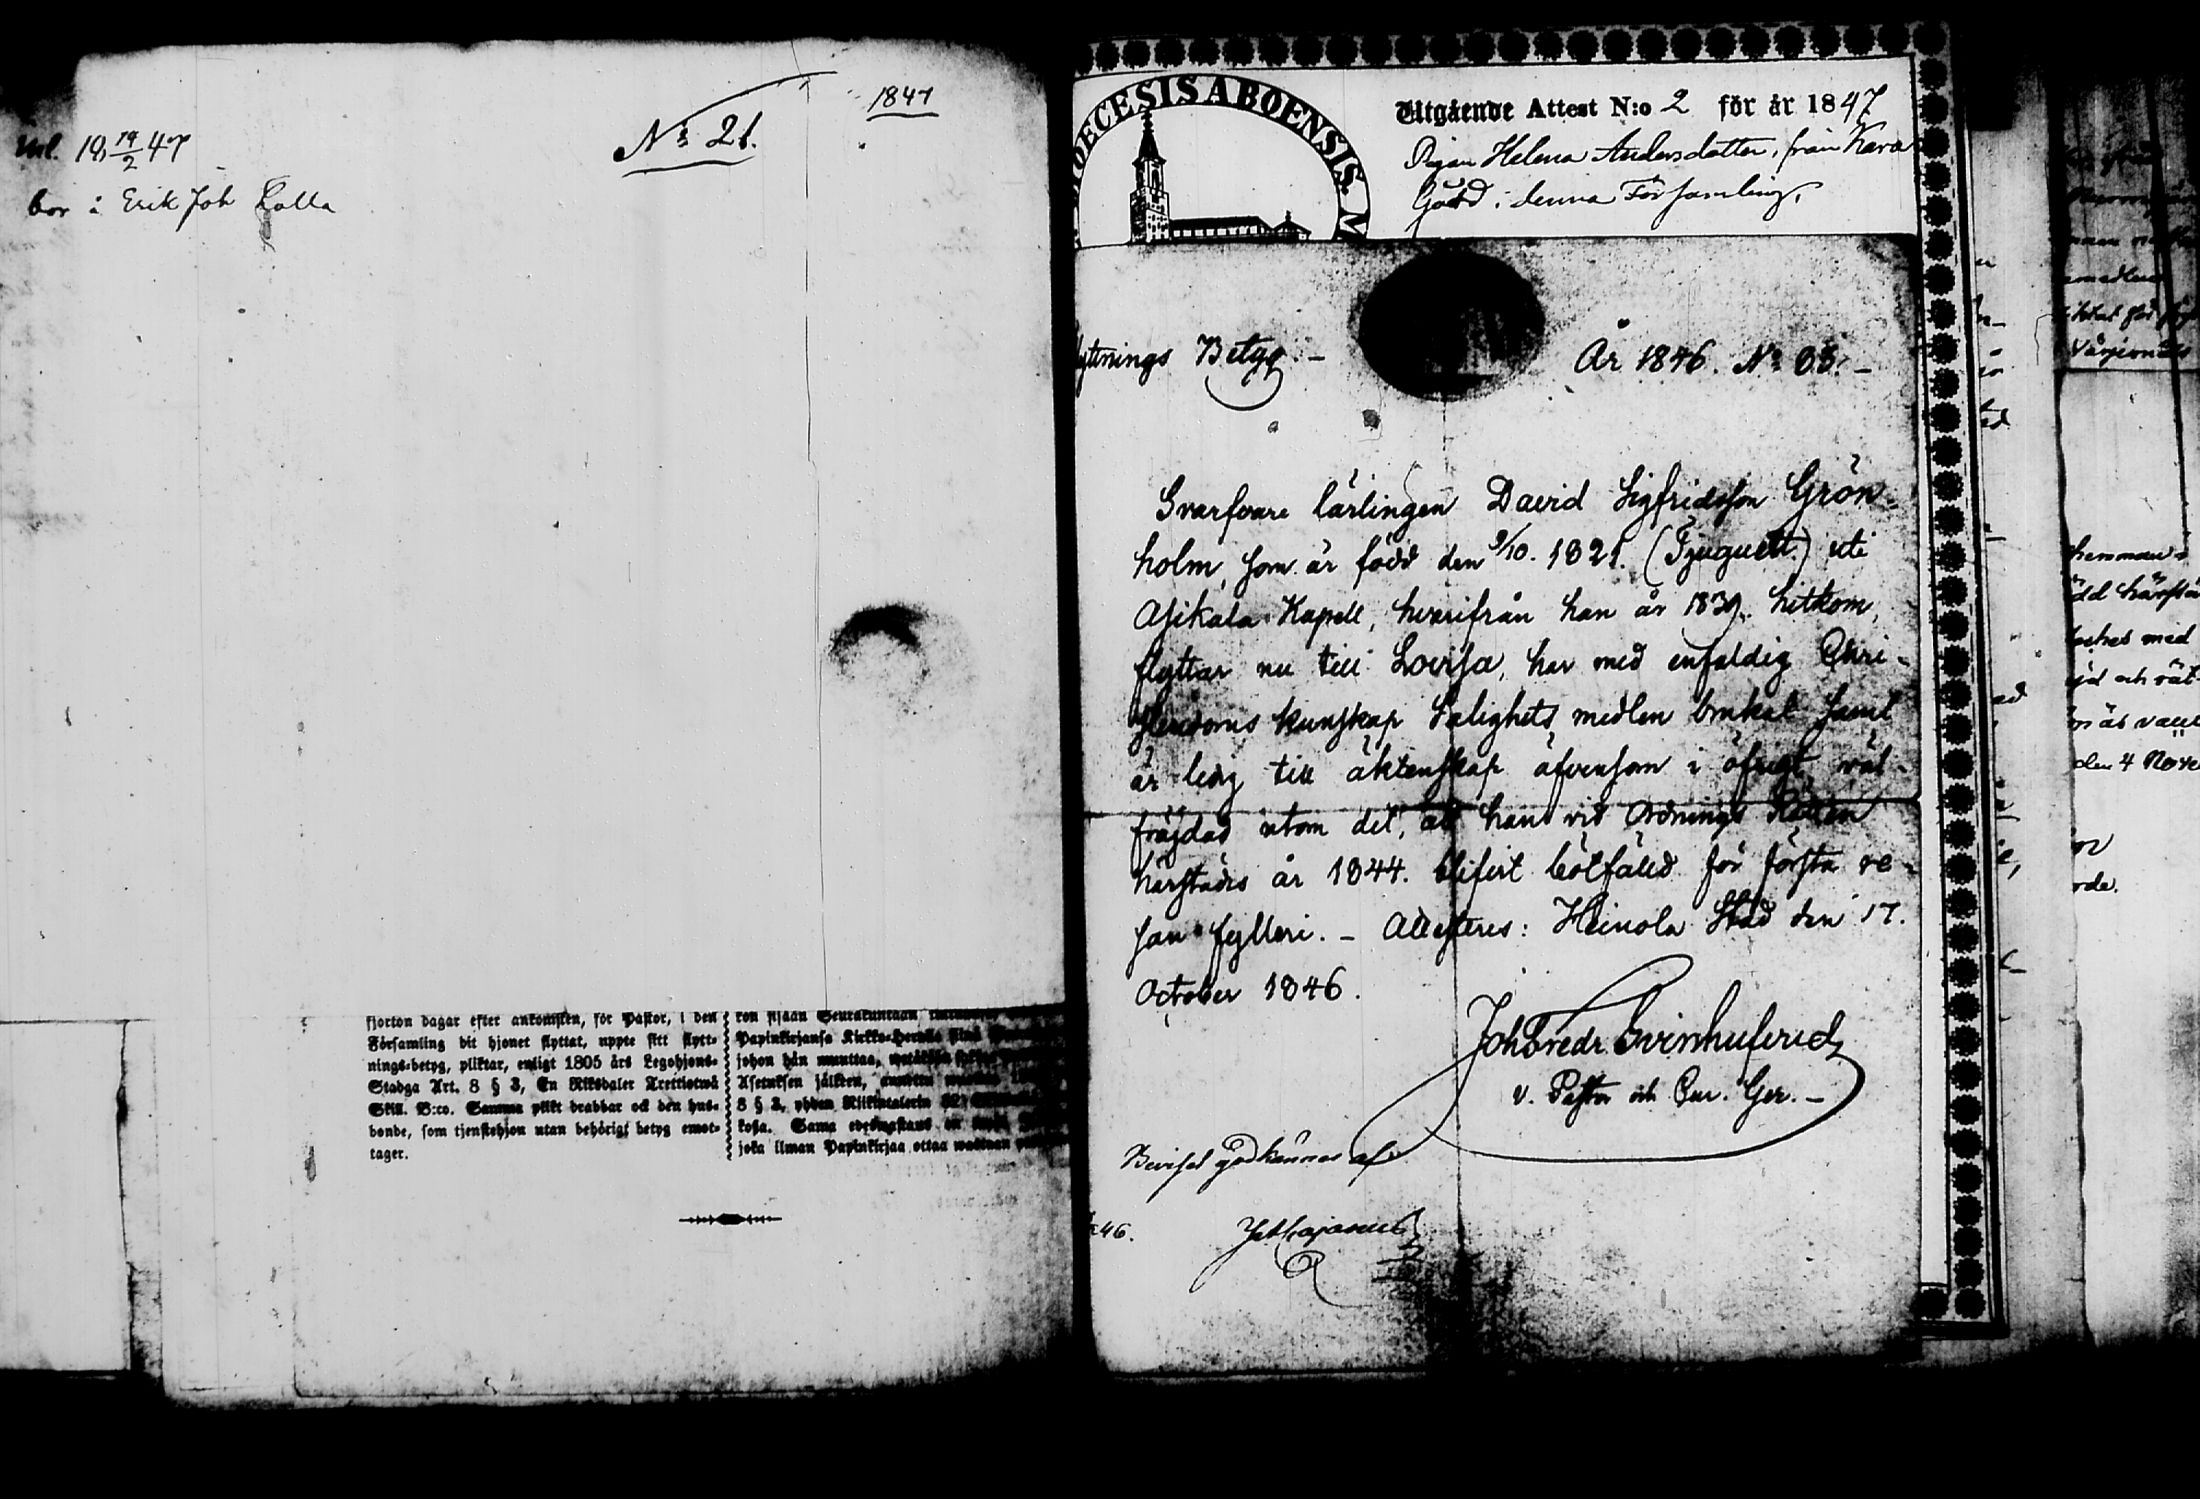 1847
Nº 21.
Inl. 18 19/2 47
bor i Erik Joh Lalla
fjorton dagar efter ankomsten, för Pastor, i den
Församling dit hjonet flyttat, uppte sitt flytt-
nings-betyg, pliktar, enligt 1805 års Legohjons-
Stadga Art. 8 § 3, En Riksdaler Trettiotwå
Skill. B:co. Samma plikt drabbar ock den hus-
bonde, som tjenstehjon utan behörigt betyg emot-
tager.
ton sisään Seurakuntaan
Papinkirjansa Kirkko-Herralle siinä
johon hän muuttaa,
Asetuksen jälkeen,
8 § 3, yhden Riikintalerin 32
kosta. Sama
joka ilman Papinkirjaa ottaa
DIOECESIS ABOENSIS M
Utgående Attest N:o 2 för år 1847
Pigan Helena Andersdotter, från Kara
Gård i denna Församling.
yttnings Betyg. –
År 1846. Nº 35. –
Svarfvare lärlingen David Sigfridsson Grön-
holm, som är född den 9/10. 1821. (Tjuguett.) uti
Asikala Kapell, hvarifrån han år 1839. hitkom,
flyttar nu till Lovisa, har med enfaldig Chri-
stendoms kunskap Salighets medlen brukat samt
är ledig till äktenskap äfvensom i öfrigt väl-
fräjdad utom det, att han vid Ordnings Rätten
härstädes år 1844. blifvit bötfälld för första re-
san fylleri. – Attesteres: Heinola Stad den 17.
October 1846.
Joh Fredr Svinhufvud
v. Pastor och Cur. Ger. –
Beviset godkännes af
46.